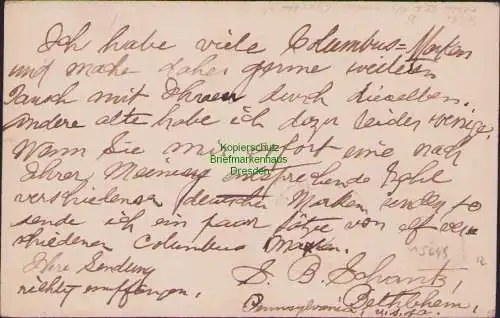 Ich habe viele Columbus=Marken
und mache daher gerne weiteren
Tausch mit Ihnen durch dieselben.
Andere alte habe ich dazu leider wenige.
Wann Sie mir sofort eine nach
Ihrer Meinung entsprechende Zahl
verschiedener deutscher Marken senden, so
sende ich ein paar Sätze von elf ver-
schiedenen Columbus Marken.
Ihre Sendung
richtig empfangen.
S. B. Schantz,
Bethlehem,
Pennsylvania, U.S.A.
Kopierschutz
Briefmarkenhaus
Dresden